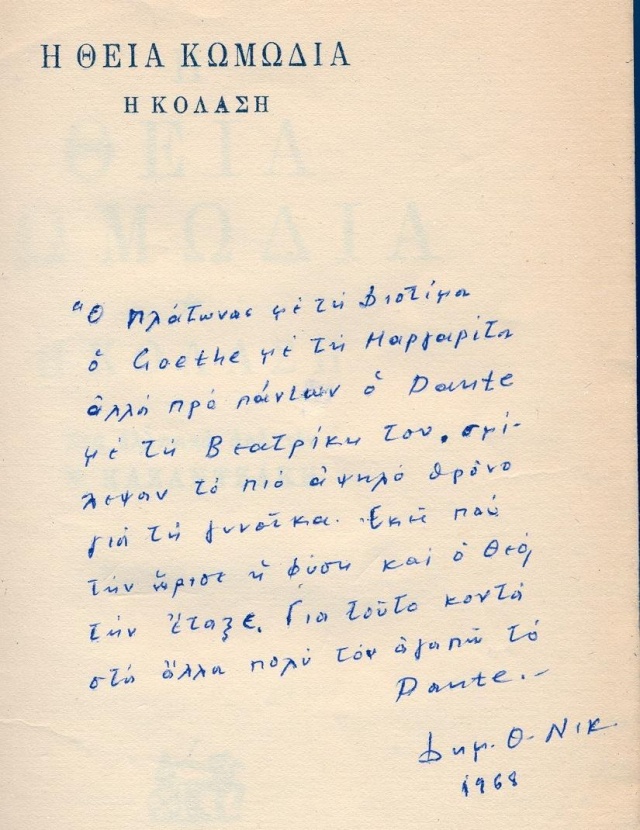 Η ΘΕΙΑ ΚΩΜΩΔΙΑ
Η ΚΟΛΑΣΗ
"Ο Πλάτωνας μὲ τὴ Διοτίμα
ὁ Goethe μὲ τὴ Μαργαρίτα
ἀλλὰ πρὸ πάντων ὁ Dante
μὲ τὴ Βεατρίκη του, σμί-
λεψαν τὸ πιὸ ἀψηλὸ θρόνο
γιὰ τὴ γυναῖκα. Ἐκεῖ ποὺ
τὴν ὥρισε ἡ φύση καὶ ὁ Θεὸς
τὴν ἔταξε. Για τοῦτο κοντὰ
στὰ ἄλλα πολὺ τὸν ἀγαπῶ τὸ
Dante.–
Δημ. Θ. Νικ.
1968